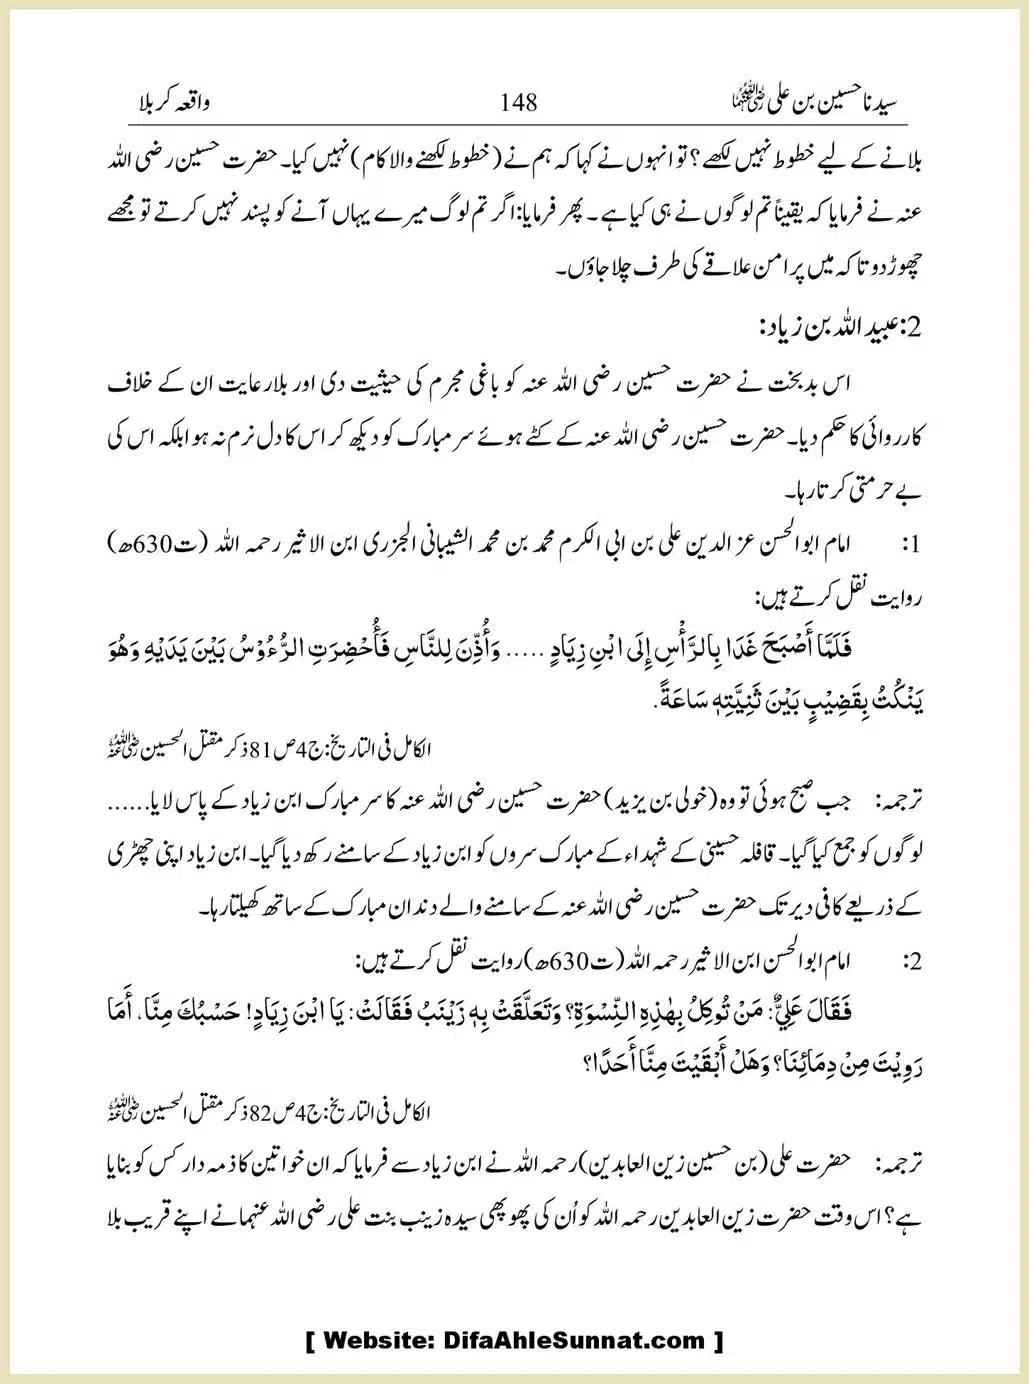 سیدنا حسین بن علی رضی اللہ عنہما 148 واقعہ کربلا
بلانے کے لیے خطوط نہیں لکھے؟ تو انہوں نے کہا کہ ہم نے (خطوط لکھنے والا کام) نہیں کیا۔ حضرت حسین رضی اللہ
عنہ نے فرمایا کہ یقیناً تم لوگوں نے ہی کیا ہے۔ پھر فرمایا: اگر تم لوگ میرے یہاں آنے کو پسند نہیں کرتے تو مجھے
چھوڑ دو تاکہ میں پر امن علاقے کی طرف چلا جاؤں۔
2: عبید اللہ بن زیاد:
اس بدبخت نے حضرت حسین رضی اللہ عنہ کو باغی مجرم کی حیثیت دی اور بلا رعایت ان کے خلاف
کارروائی کا حکم دیا۔ حضرت حسین رضی اللہ عنہ کے کٹے ہوئے سر مبارک کو دیکھ کر اس کا دل نرم نہ ہوا بلکہ اس کی
بے حرمتی کرتا رہا۔
1: امام ابو الحسن عز الدین علی بن ابی الکرم محمد بن محمد الشیبانی الجزری ابن الاثیر رحمہ اللہ (ت630ھ)
روایت نقل کرتے ہیں:
فَلَمَّا أَصْبَحَ غَدَا بِالرَّأْسِ إِلَى ابْنِ زِيَادٍ ..... وَأُذِّنَ لِلنَّاسِ فَأُحْضِرَتِ الرُّءُوْسُ بَيْنَ يَدَيْهِ وَهُوَ
يَنْكُتُ بِقَضِيْبٍ بَيْنَ ثَنِيَّتِهٖ سَاعَةً.
الکامل فی التاریخ: ج4 ص81 ذکر مقتل الحسین رضی اللہ عنہ
ترجمہ: جب صبح ہوئی تو وہ (خولی بن یزید) حضرت حسین رضی اللہ عنہ کا سر مبارک ابن زیاد کے پاس لایا......
لوگوں کو جمع کیا گیا۔ قافلہ حسینی کے شہداء کے مبارک سروں کو ابن زیاد کے سامنے رکھ دیا گیا۔ ابن زیاد اپنی چھڑی
کے ذریعے کافی دیر تک حضرت حسین رضی اللہ عنہ کے سامنے والے دندان مبارک کے ساتھ کھیلتا رہا۔
2: امام ابو الحسن ابن الاثیر رحمہ اللہ (ت630ھ) روایت نقل کرتے ہیں:
فَقَالَ عَلِيٌّ: مَنْ تُوكِلُ بِهٰذِهِ النِّسْوَةِ؟ وَتَعَلَّقَتْ بِهٖ زَيْنَبُ فَقَالَتْ: يَا ابْنَ زِيَادٍ! حَسْبُكَ مِنَّا، أَمَا
رَوِيْتَ مِنْ دِمَائِنَا؟ وَهَلْ أَبْقَيْتَ مِنَّا أَحَدًا؟
الکامل فی التاریخ: ج4 ص82 ذکر مقتل الحسین رضی اللہ عنہ
ترجمہ: حضرت علی (بن حسین زین العابدین) رحمہ اللہ نے ابن زیاد سے فرمایا کہ ان خواتین کا ذمہ دار کس کو بنایا
ہے؟ اس وقت حضرت زین العابدین رحمہ اللہ کو اُن کی پھوپھی سیدہ زینب بنت علی رضی اللہ عنہما نے اپنے قریب بلا
[ Website: DifaAhleSunnat.com ]